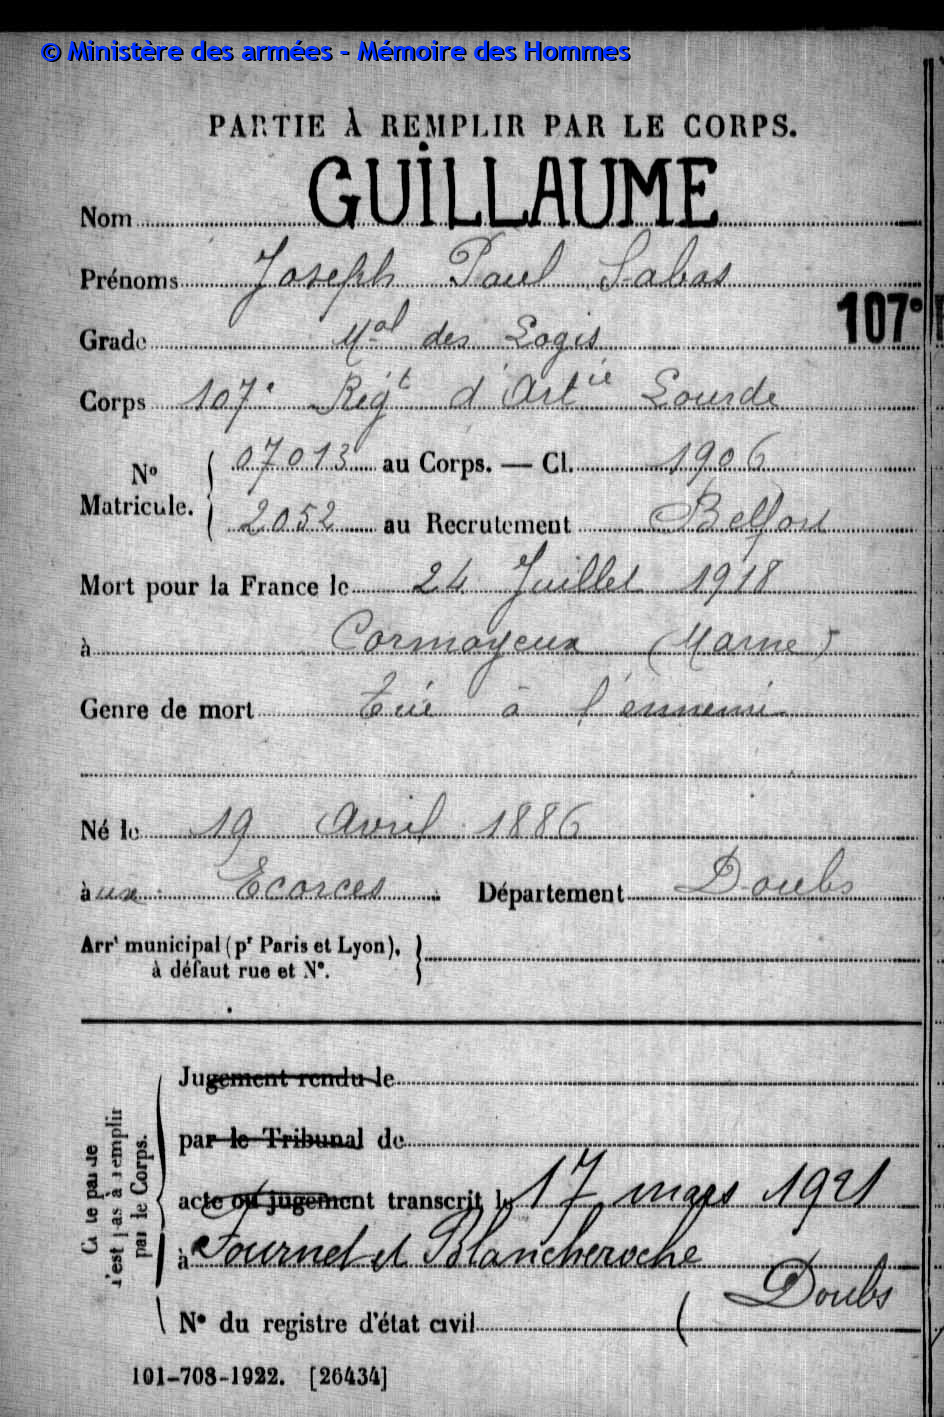 © Ministère des armées - Mémoire des Hommes
PARTIE À REMPLIR PAR LE CORPS.
Nom GUILLAUME
Prénoms Joseph Paul Sabas
Grade Mal des Logis
107e
Corps 107e Régt d'Artie Lourde
No Matricule. 07013 au Corps. — Cl. 1906
2052 au Recrutement Belfort
Mort pour la France le 24 Juillet 1918
à Cormoyeux (Marne)
Genre de mort Tué à l'ennemi
Né le 19 Avril 1886
à ux Ecorces Département Doubs
Arrt municipal (pr Paris et Lyon),
à défaut rue et No.
Jugement rendu le
par le Tribunal de
acte ou jugement transcrit le 17 mars 1921
à Fournet et Blancheroche
(Doubs
No du registre d'état civil
Cette partie
n'est pas à remplir
par le Corps.
101-708-1922. [26434]